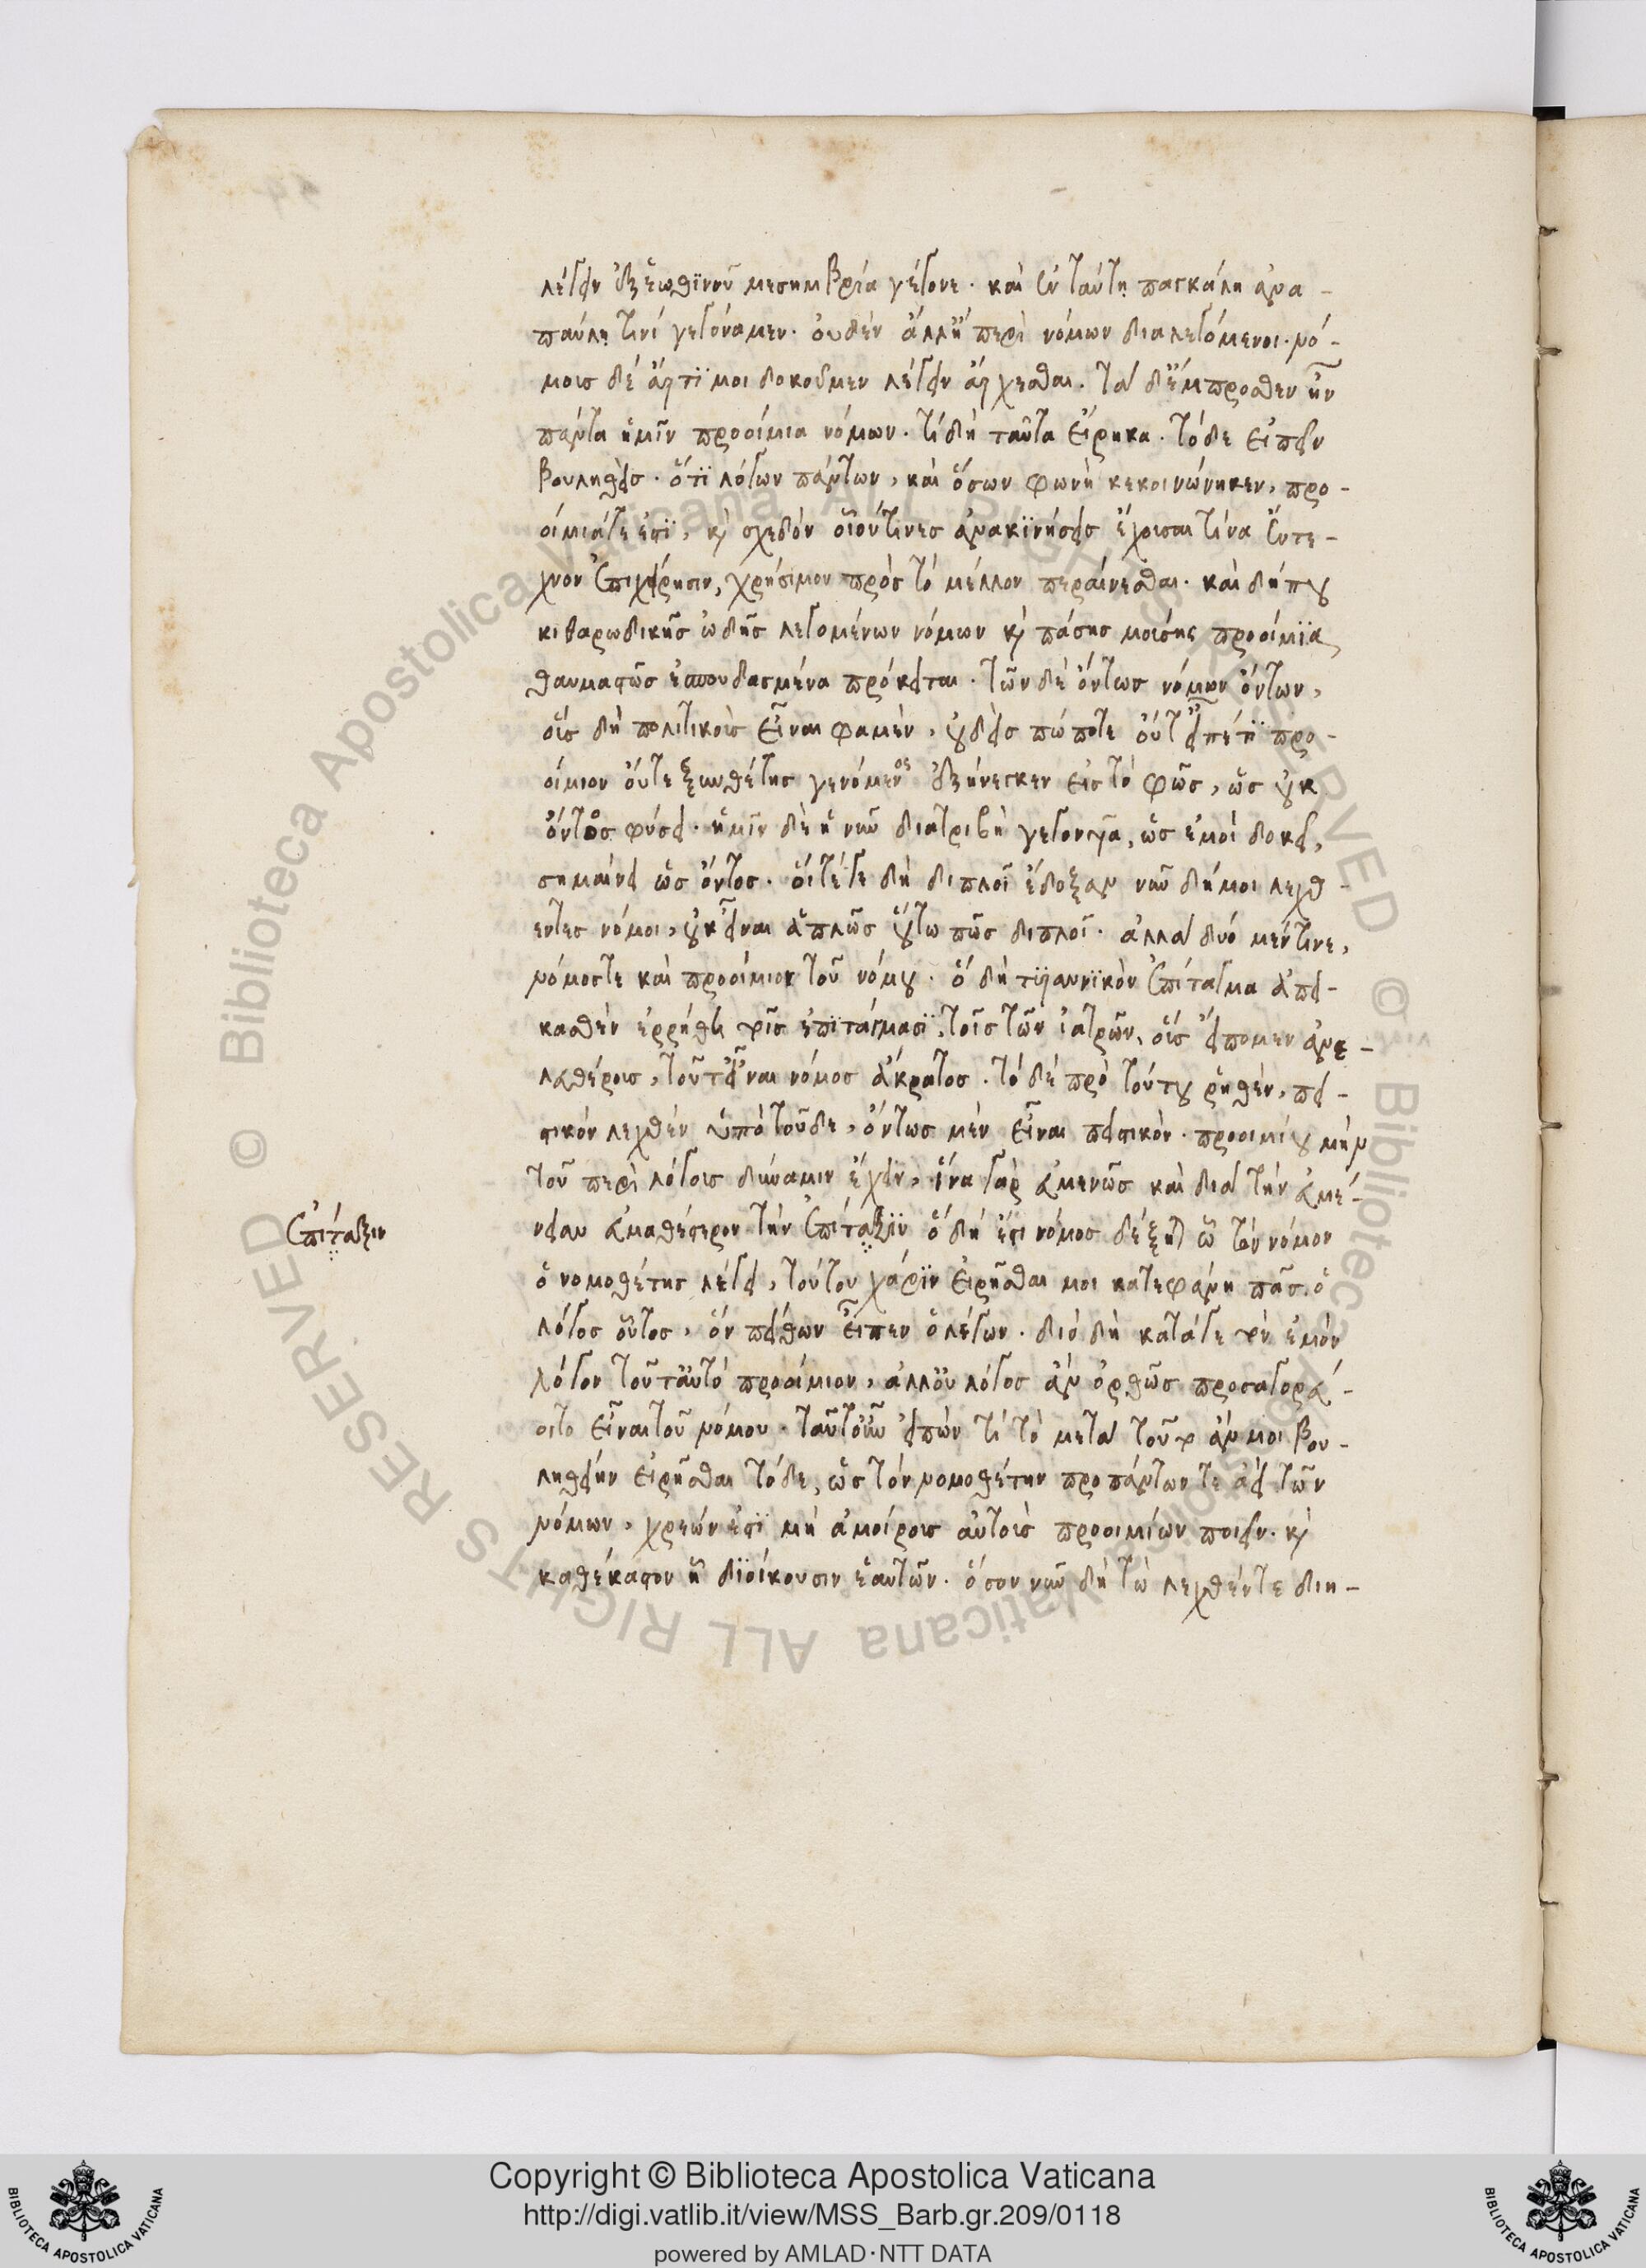 λέγειν ἐξ ἑωθινοῦ μεσημβρία γέγονε. καὶ ἐν ταύτῃ παγκάλη ἀνα-
παύλῃ τινί γεγόναμεν. οὐδέν ἀλλ' ἢ περὶ νόμων διαλεγόμενοι. νό-
μοις δέ ἄρτι μοι δοκοῦμεν λέγειν ἄρχεσθαι. τὰ δ' ἔμπροσθεν ἦν
πάντα ἡμῖν προοίμια νόμων. τί δὴ ταῦτα εἴρηκα. τόδε εἰπεῖν
βουληθεὶς. ὅτι λόγων πάντων, καὶ ὅσων φωνὴ κεκοινώνηκεν, προ-
οίμιά τε ἐστὶ, καὶ σχεδόν οἷόν τινες ἀνακινήσεις ἔχουσαι τίνα ἔντε-
χνον ἐπιχείρησιν, χρήσιμον πρὸς τό μέλλον περαίνεσθαι. καὶ δή που
κιθαρωδικῆς ὠδῆς λεγομένων νόμων καὶ πάσης μούσης προοίμια
θαυμαστῶς ἐσπουδασμένα πρόκειται. τῶν δὲ ὄντως νόμων ὄντων,
οὕς δὴ πολιτικοὺς εἶναι φαμὲν, οὐδεὶς πώποτε οὔτ' εἶπέ τι προ-
οίμιον οὔτε ξυνθέτης γενόμενος ἐξήνεγκεν εἰς τὸ φῶς, ὡς οὐκ
ὄντος φύσει. ἡμῖν δὲ ἡ νῦν διατριβὴ γεγονυῖα, ὡς ἐμοί δοκεῖ,
σημαίνει ὡς ὄντος. οἵ τέ γε δὴ διπλοῖ ἔδοξαν νῦν δή μοι λεχθ-
εντες νόμοι, οὐκ εἶναι ἁπλῶς οὕτω πῶς διπλοῖ. ἀλλὰ δύο μέν τινε,
νόμος τε καὶ προοίμιον τοῦ νόμου. ὅ δὴ τυραννικὸν ἐπίταγμα ἀπει-
κασθὲν ἐρρήθη τοῖς ἐπιτάγμασι, τοῖς τῶν ἰατρῶν, οὕς εἴπομεν ἀνε-
λευθέρους, τοῦτ' εἶναι νόμος ἄκρατος. τό δέ πρὸ τούτου ῥηθὲν, πει-
στικόν λεχθέν ὑπὸ τοῦδε, ὄντως μὲν εἶναι πειστικὸν. προοιμίου μὴν
τοῦ περὶ λόγους δύναμιν ἔχειν, ἵνα γὰρ εὐμενῶς καὶ διὰ τὴν εὐμέ-
νειαν εὐμαθέστερον τὴν ἐπίταξιν ὅ δή ἐστι νόμος δέξηται ᾧ τὸν νόμον
ὁ νομοθέτης λέγει, τούτου χάριν εἰρῆσθαι μοι κατεφάνη πᾶς ὁ
λόγος οὗτος, ὅν πείθων εἶπεν ὁ λέγων. διὸ δὴ κατά γε τὸν ἐμόν
λόγον τοῦτ' αὐτό προοίμιον, ἀλλ' οὐ λόγος ἂν ὀρθῶς προσαγορεύ-
οιτο εἶναι τοῦ νόμου. ταῦτ' οὖν εἰπὼν τί τὸ μετὰ τοῦτο ἄν μοι βου-
ληθείην εἰρῆσθαι τόδε, ὡς τόν νομοθέτην προπάντων τε ἀεὶ τῶν
νόμων, χρεών ἐστι μή ἀμοίρους αὐτοὺς προοιμίων ποιεῖν. καὶ
καθέκαστον ᾗ διοίκουσιν ἑαυτῶν. ὅσον νῦν δή τὼ λεχθέντε διη-
ἐπίταξιν
Copyright © Biblioteca Apostolica Vaticana
http://digi.vatlib.it/view/MSS_Barb.gr.209/0118
powered by AMLAD·NTT DATA